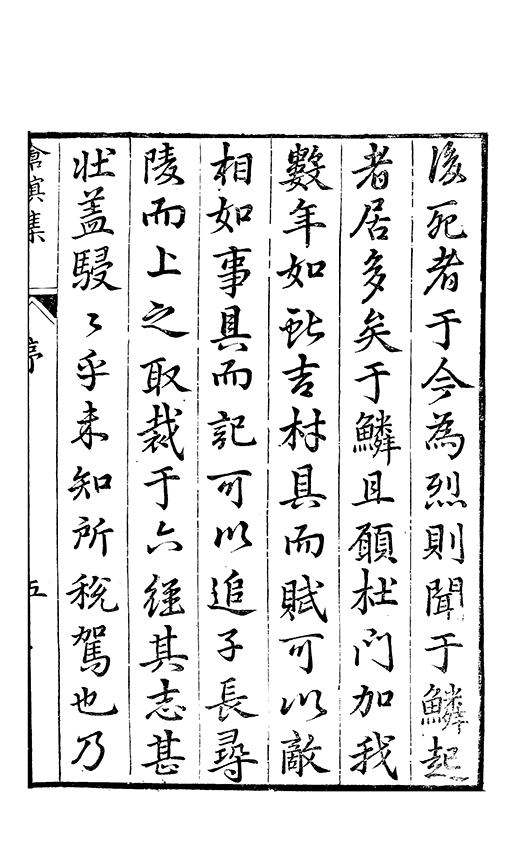 後死者于今為烈則聞于鱗起
者居多矣于鱗且願杜門加我
數年如此吉材具而賦可以敵
相如事具而記可以追子長尋
陵而上之取裁于六經其志甚
壯蓋駸〻乎未知所稅駕也乃
滄溟集
序
五